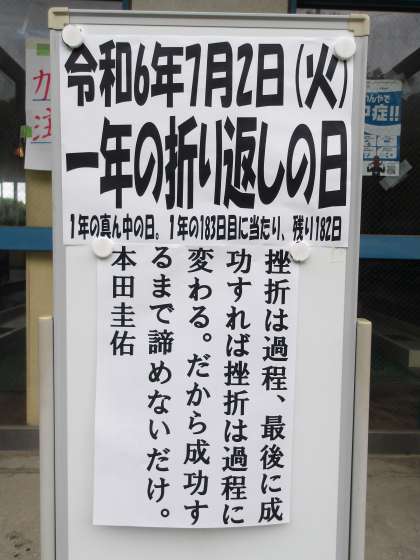 令和6年7月2日（火）
一年の折り返しの日
1年の真ん中の日。1年の183日目に当たり、残り182日
挫折は過程、最後に成
功すれば挫折は過程に
変わる。だから成功す
るまで諦めないだけ。
本田圭佑
注
中症!!